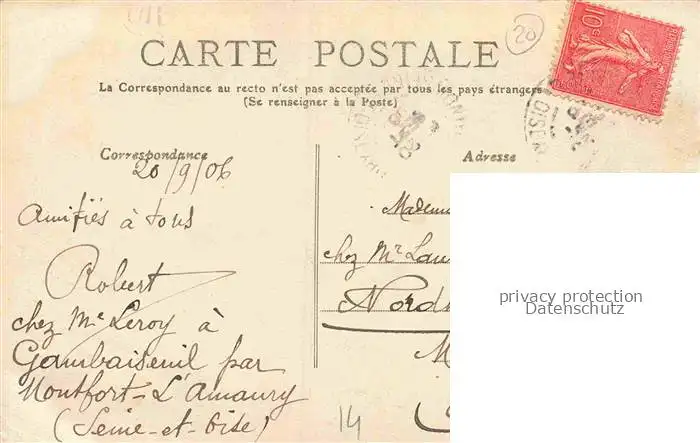 20
CARTE POSTALE
10c
La Correspondance au recto n'est pas acceptée par tous les pays étrangers
(Se renseigner à la Poste)
Correspondance
20/9/06
Amitiés à tous
Robert
chez Mr Leroy à
Gambaiseuil par
Montfort-L'Amaury
(Seine-et-Oise)
Adresse
chez Mr
14
privacy protection
Datenschutz